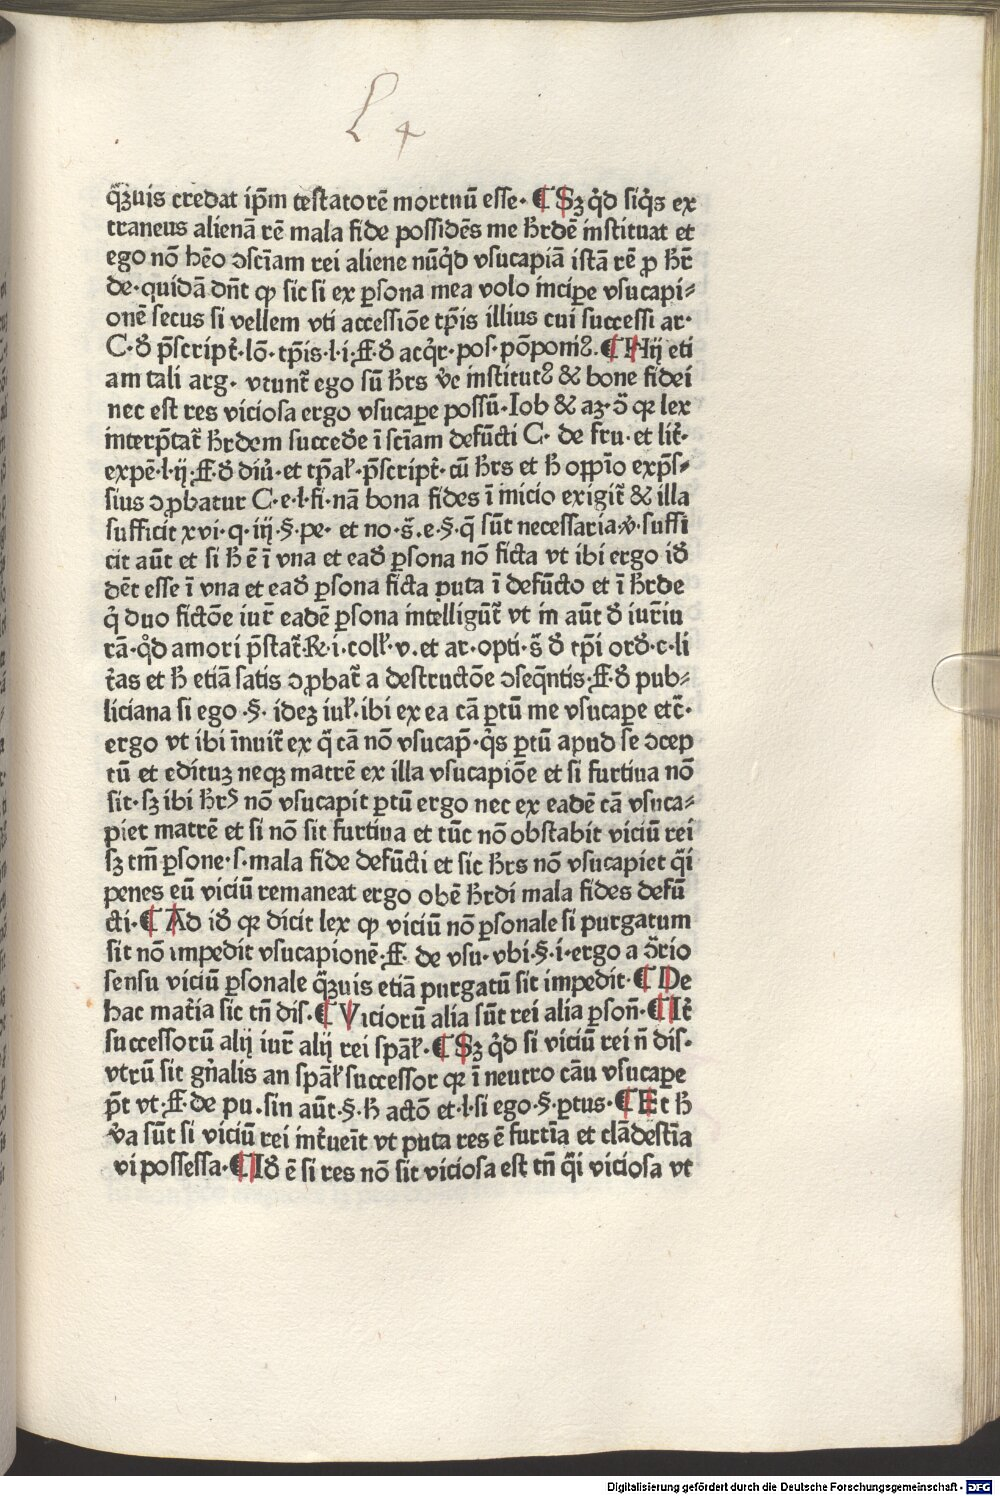 L 4
q̄ꝫuis credat ip̄m testatorē mortuū esse· ¶ Sꝫ qͥd siqͥs ex
traneus alienā rē mala fide possidēs me h̄rdē instituat et
ego nō hēo ꝯscīam rei aliene nūqͥd vsucapiā istā rē ꝓ h̄r
de·quidā dn̄t ꝙ sic si ex ꝑsona mea volo incipe vsucapi⸗
onē secus si vellem vti accessiōe tp̄is illius cui successi ar·
C·ð p̄script̄·lō·tp̄is·l·i·ff·ð acqͥr·pos·pōponiꝰ.¶ Hij eti
am tali arg· vtunt̄ ego sū h̄rs v̄e institutꝰ & bone fidei
nec est res viciosa ergo vsucape possū·Iob & aꝫ·ꝯ̄ qꝛ lex
interp̄tat̄ h̄rdem succeð̄e ī scīam defūcti C· de fru·et lit̄·
expē·l·ij·ff·ð diu̇·et tp̄al̄·p̄script̄·cū h̄rs et h̄ oꝑp̄io exp̄s⸗
sius ꝯꝓbatur C·e·l·fi·nā bona fides ī inicio exigit̄ & illa
sufficit xvi·q·iij·§·pe· et no·s̄·e·§·q̄ sūt necessaria·v̊·suffi
cit aūt et si h̄ ē ī vna et eað ꝑsona nō ficta vt ibi ergo ið
dēt esse ī vna et eað ꝑsona ficta puta ī defūcto et ī h̄rde
qͥ duo fictōe iur̄ eadē ꝑsona intelligūt̄ vt in aūt ð iur̄iu
rā·qͦd amori p̄stat̄·R·i·coll̄·v·et ar·opti·s̄ ð tp̄i orð·c·li
t̄as et h̄ etiā satis ꝯꝓbat̄ a destructōe ꝯseq̄ntis·ff·ð pub⸗
liciana si ego·§· ideꝫ iul̄·ibi ex ea cā ꝑtū me vsucape etc̄·
ergo vt ibi īnuit̄ ex q̄ cā nō vsucap̄·qͥs ꝑtū apud se ꝯcep
tū et edituꝫ neqꝫ matrē ex illa vsucapiōe et si furtiua nō
sit·sꝫ ibi h̄rꝰ nō vsucapit ꝑtū ergo nec ex eadē cā vsuca⸗
piet matrē et si nō sit furtiua et tūc nō obstabit viciū rei
sꝫ tm̄ ꝑsone·s·mala fide defūcti et sic h̄rs nō vsucapiet q̄i
penes eū viciū remaneat ergo obē h̄rdi mala fides defū
cti·¶ Ad ið qꝛ dicit lex ꝙ viciū nō ꝑsonale si purgatum
sit nō impedit vsucapionē·ff· de vsu·vbi·§·i·ergo a ꝯ̄rio
sensu viciū ꝑsonale q̄ꝫuis etiā purgatū sit impedit·¶ De
hac mat̄ia sic tn̄ dis.¶ Viciorū alia sūt rei alia ꝑson̄·¶ It̄
successorū alij iur̄ alij rei spāl̄·¶ Sꝫ qͥd si viciū rei n̄ dis·
vtrū sit gn̄alis an spāl̄ successor qꝛ ī neutro cāu vsucape
p̄t vt·ff·de pu.sin aūt·§·h̄ actō et·l·si ego·§·ꝑtus·¶ Et h̄
v̄a sūt si viciū rei int̄ueīt vt puta res ē furtīa et clādestīa
vi possessa·¶ Ið ē si res nō sit viciosa est tn̄ q̄i viciosa vt
Digitalisierung gefördert durch die Deutsche Forschungsgemeinschaft - DFG